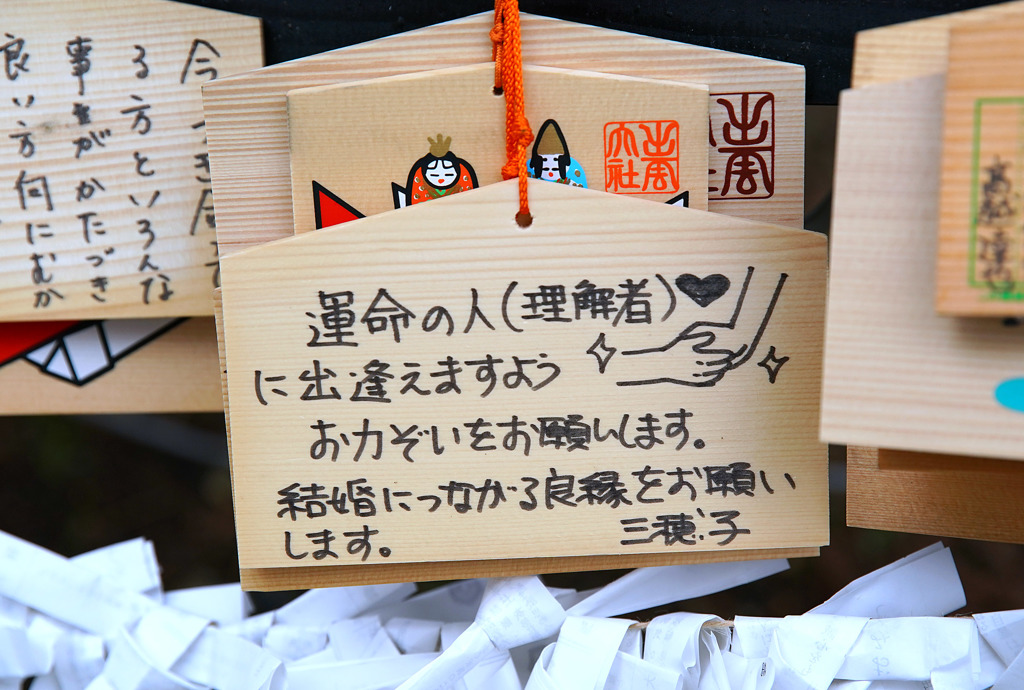 運命の人(理解者)♥
に出逢えますよう
お力ぞいをお願いします。
結婚につながる良縁をお願い
します。
三穂子
る方といろんな
事をがかたづき
良い方向にむか
出雲
大社